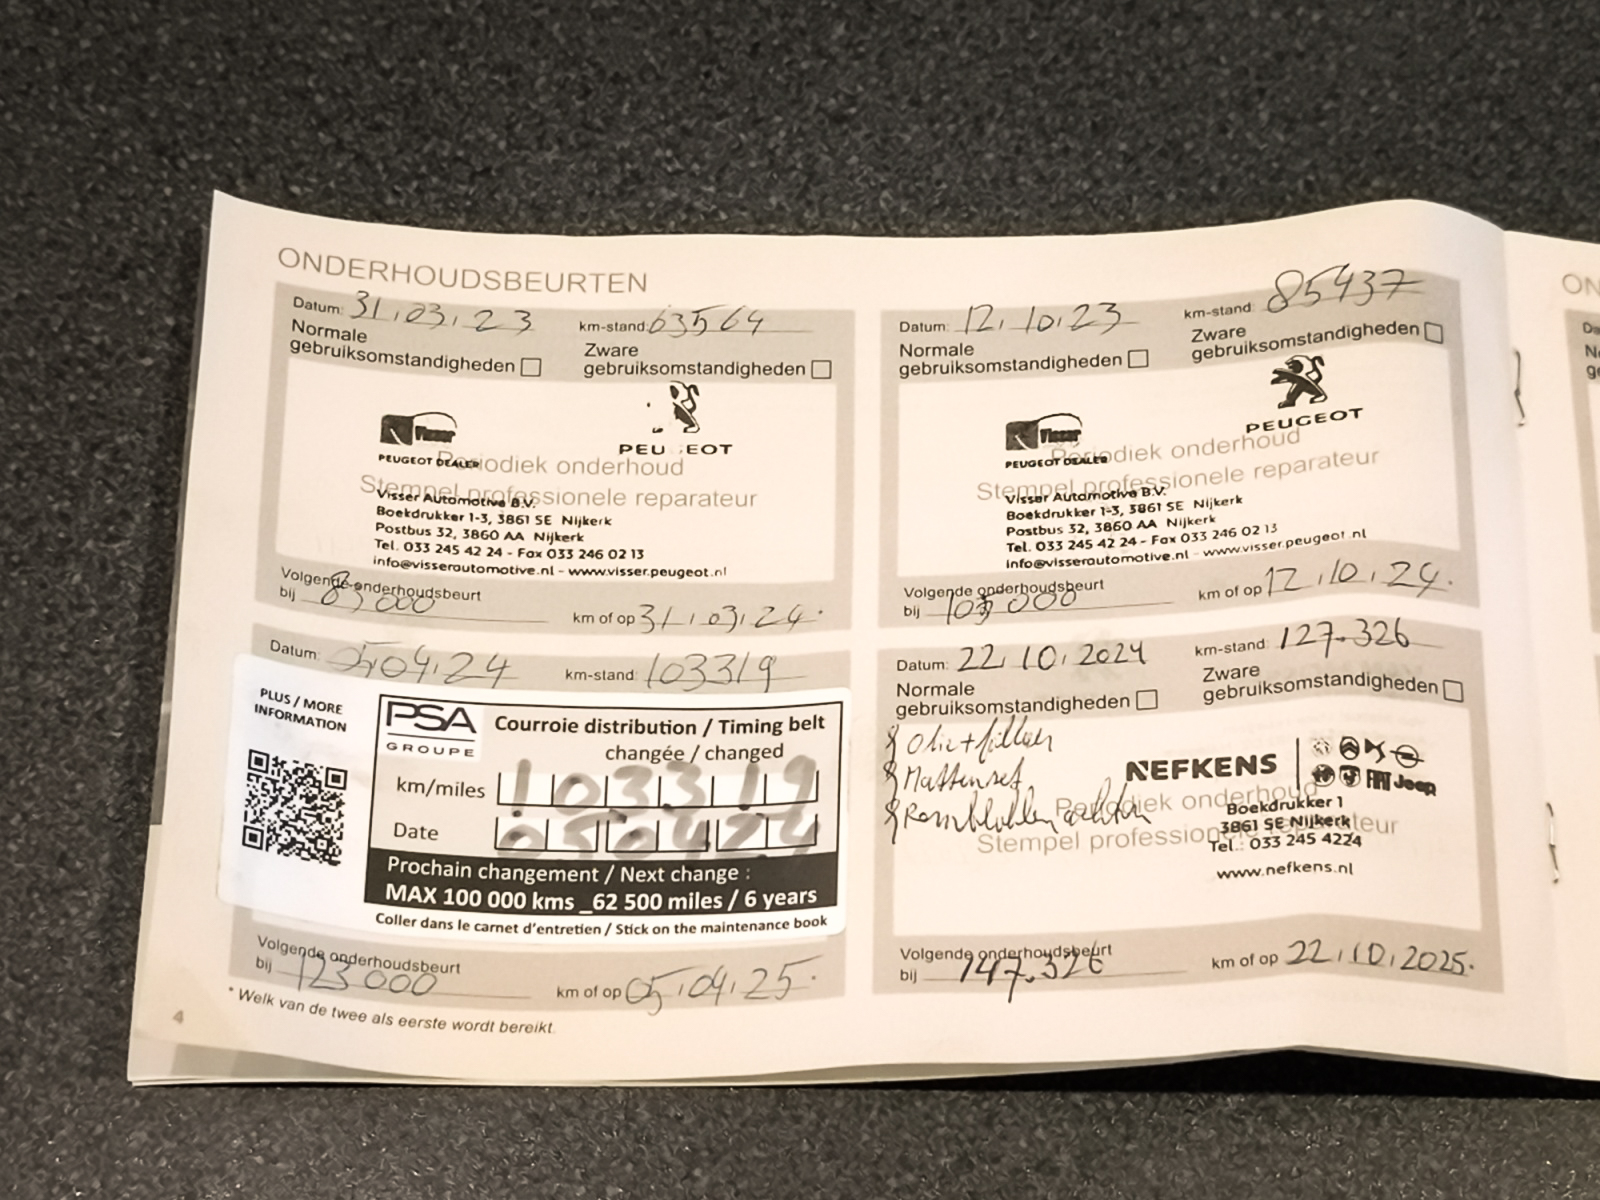 ONDERHOUDSBEURTEN
Datum: 31.03.23 km-stand: 63564
Normale gebruiksomstandigheden
Zware gebruiksomstandigheden
Visser
PEUGEOT DEALER
PEU GEOT
Periodiek onderhoud
Stempel professionele reparateur
Visser Automotive B.V.
Boekdrukker 1-3, 3861 SE Nijkerk
Postbus 32, 3860 AA Nijkerk
Tel. 033 245 42 24 - Fax 033 246 02 13
info@visserautomotive.nl - www.visser.peugeot.nl
Volgende onderhoudsbeurt
bij 83000 km of op 31.03.24.
Datum: 12.10.23 km-stand: 85437
Normale gebruiksomstandigheden
Zware gebruiksomstandigheden
Visser
PEUGEOT DEALER
PEUGEOT
Periodiek onderhoud
Stempel professionele reparateur
Visser Automotive B.V.
Boekdrukker 1-3, 3861 SE Nijkerk
Postbus 32, 3860 AA Nijkerk
Tel. 033 245 42 24 - Fax 033 246 02 13
info@visserautomotive.nl - www.visser.peugeot.nl
Volgende onderhoudsbeurt
bij 103000 km of op 12.10.24.
Datum: 05.04.24 km-stand: 103319
PLUS / MORE
INFORMATION
PSA
GROUPE
Courroie distribution / Timing belt
changée / changed
km/miles 103319
Date 050424
Prochain changement / Next change :
MAX 100 000 kms _62 500 miles / 6 years
Coller dans le carnet d'entretien / Stick on the maintenance book
Volgende onderhoudsbeurt
bij 123000 km of op 05.04.25.
Datum: 22.10.2024 km-stand: 127.326
Normale gebruiksomstandigheden
Zware gebruiksomstandigheden
Olie+filter
Mattenset
Remblokken achter
NEFKENS
FIAT Jeep
Periodiek onderhoud
Stempel professionele reparateur
Boekdrukker 1
3861 SE Nijkerk
Tel.: 033 245 4224
www.nefkens.nl
Volgende onderhoudsbeurt
bij 147.326 km of op 22.10.2025.
* Welk van de twee als eerste wordt bereikt.
4
ON